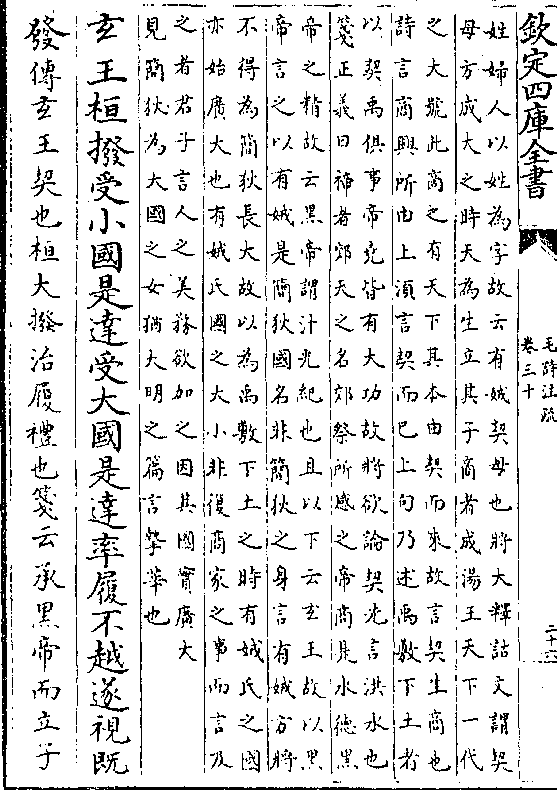 欽定四庫全書
毛詩注疏
卷三十
二十六
姓婦人以姓為字故云有娀契母也將大釋詁文謂契
母方成大之時天為生立其子商者成湯王天下一代
之大號此商之有天下其本由契而來故言契生商也
詩言商興所由上須言契而已上句乃述禹敷下土者
以契禹俱事帝堯皆有大功故將欲論契先言洪水也
箋正義曰禘者郊天之名郊祭所感之帝商是水德黑
帝之精故云黑帝謂汁光紀也且以下云玄王故以黑
帝言之以有娀是簡狄國名非簡狄之身言有娀方將
不得為簡狄長大故以為禹敷下土之時有娀氏之國
亦始廣大也有娀氏國之大小非復商家之事而言及
之者君子言人之美務欲加之因其國實廣大
見簡狄為大國之女猶大明之篇言摯莘也
玄王桓撥受小國是達受大國是達率履不越遂視既
發傳玄王契也桓大撥治履禮也箋云承黑帝而立子